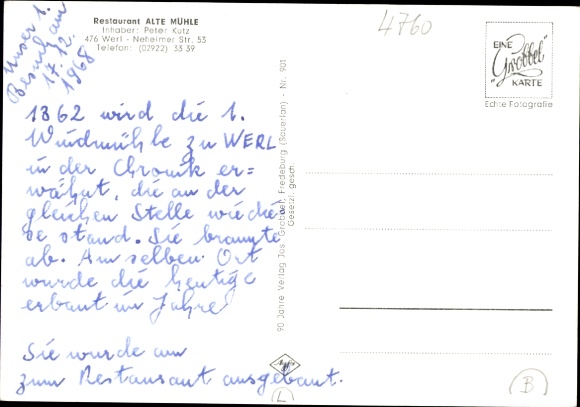 Restaurant ALTE MÜHLE
Inhaber: Peter Kutz
476 Werl - Neheimer Str. 53
Telefon: (02922) 33 39
Unser 1.
Besuch am
17.12.
1968
4760
EINE
"Grobbel"
KARTE
Echte Fotografie
1862 wird die 1.
Windmühle zu WERL
in der Chronik er=
wähnt, die an der
gleichen Stelle wie die=
se stand. Sie brannte
ab. Am selben Ort
wurde die heutige
erbaut im Jahre
Sie wurde am
zum Restaurant ausgebaut.
90 Jahre Verlag Jos. Grobbel, Fredeburg (Sauerlan) - Nr. 901
Gesetzl. gesch.
Agfa
L
B